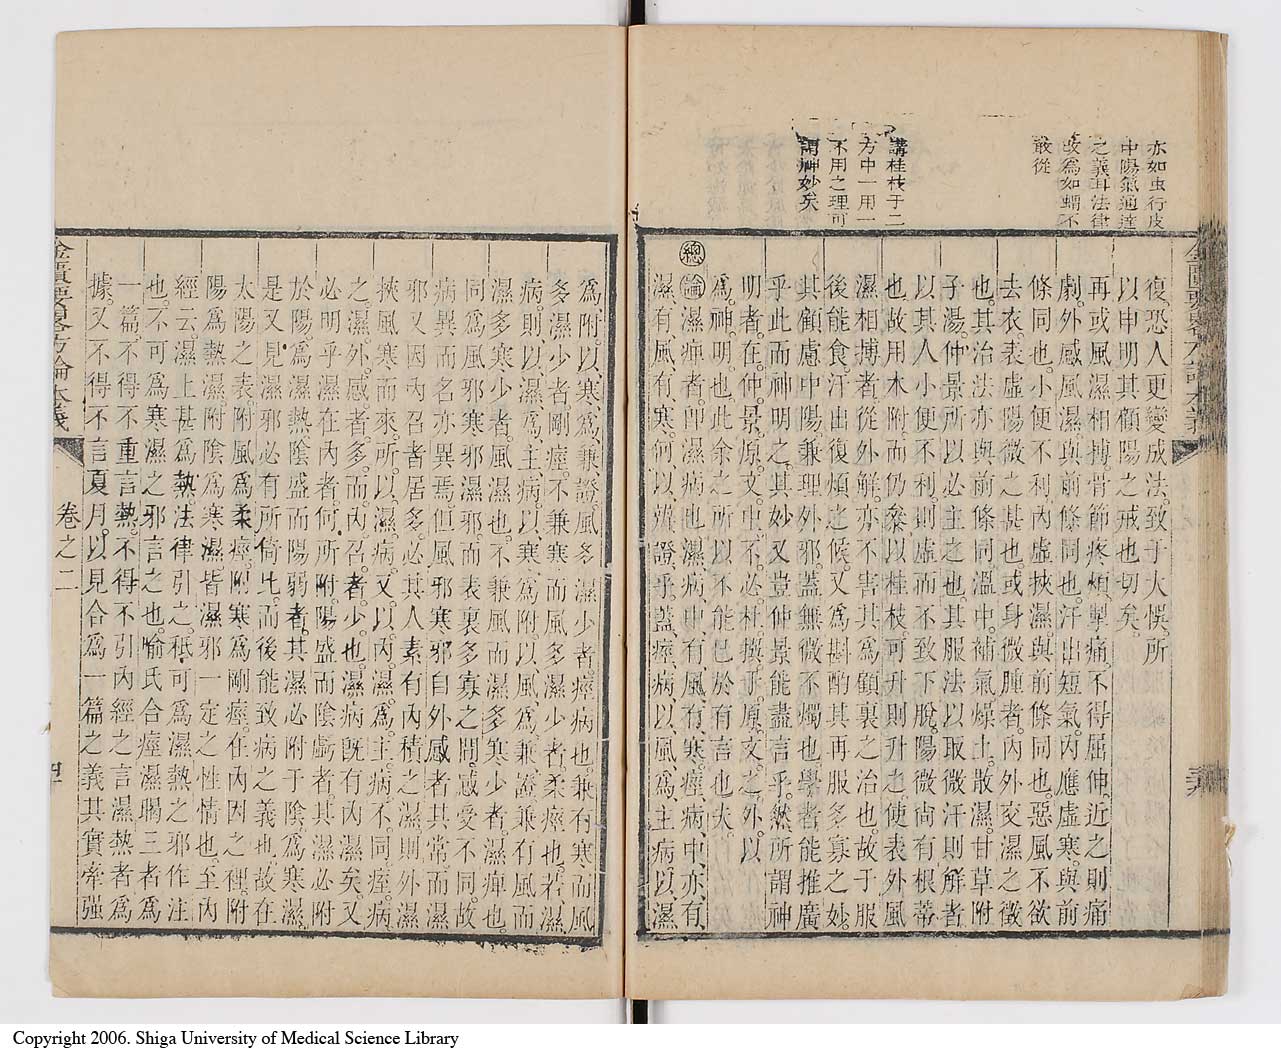 亦如虫行皮
中陽氣通達
之義耳法律
改為如蝟不
敢從
講桂枝于二
方中一用一
不用之理可
謂神妙矣
復恐人更變成法致于大悞所
以申明其顧陽之戒也切矣
再或風濕相搏骨節疼煩掣痛不得屈伸近之則痛
劇外感風濕與前條同也汗出短氣內應虛寒與前
條同也小便不利內虛挾濕與前條同也惡風不欲
去衣表虛陽微之甚也或身微腫者內外交濕之徵
也其治法亦與前條同溫中補氣燥土散濕甘草附
子湯仲景所以必主之也其服法以取微汗則解者
以其人小便不利則虛而不致下脫陽微尚有根蒂
也故用朮附而仍兼以桂枝可升則升之使表外風
濕相搏者從外解亦不害其為顧裏之治也故于服
後能食汗出復煩之候又為斟酌其再服多寡之妙
其顧慮中陽兼理外邪蓋無微不燭也學者能推廣
乎此而神明之其妙又豈仲景能盡言乎然所謂神
明者在仲景原文中不必杜撰于原文之外以
為神明也此余之所以不能已於有言也夫
總論濕痺者即濕病也濕病中有風有寒痙病中亦有
濕有風有寒何以辨證乎蓋痙病以風為主病以濕
為附以寒為兼證風多濕少者痙病也兼有寒而風
多濕少者剛痙不兼寒而風多濕少者柔痙也若濕
病則以濕為主病以寒為附以風為兼證兼有風而
濕多寒少者風濕也不兼風而濕多寒少者濕痺也
同為風邪寒邪濕邪而表裏多寡之間感受不同故
病異而名亦異焉但風邪寒邪自外感者其常而濕
邪又因內召者居多必其人素有內積之濕則外濕
挾風寒而來所以濕病又以內濕為主病不同痙病
之濕外感者多而內召者少也濕病既有內濕矣又
必明乎濕在內者何所附陽盛而陰虧者其濕必附
於陽為濕熱陰盛而陽弱者其濕必附于陰為寒濕
是又見濕邪必有所倚比而後能致病之義也故在
太陽之表附風為柔痙附寒為剛痙在內因之裡附
陽為熱濕附陰為寒濕皆濕邪一定之性情也至內
經云濕上甚為熱法律引之秪可為濕熱之邪作注
也不可為寒濕之邪言之也喻氏合痙濕暍三者為
一篇不得不重言熱不得不引內經之言濕熱者為
據又不得不言夏月以見合為一篇之義其實牽強
金匱要略方論本義
卷之二